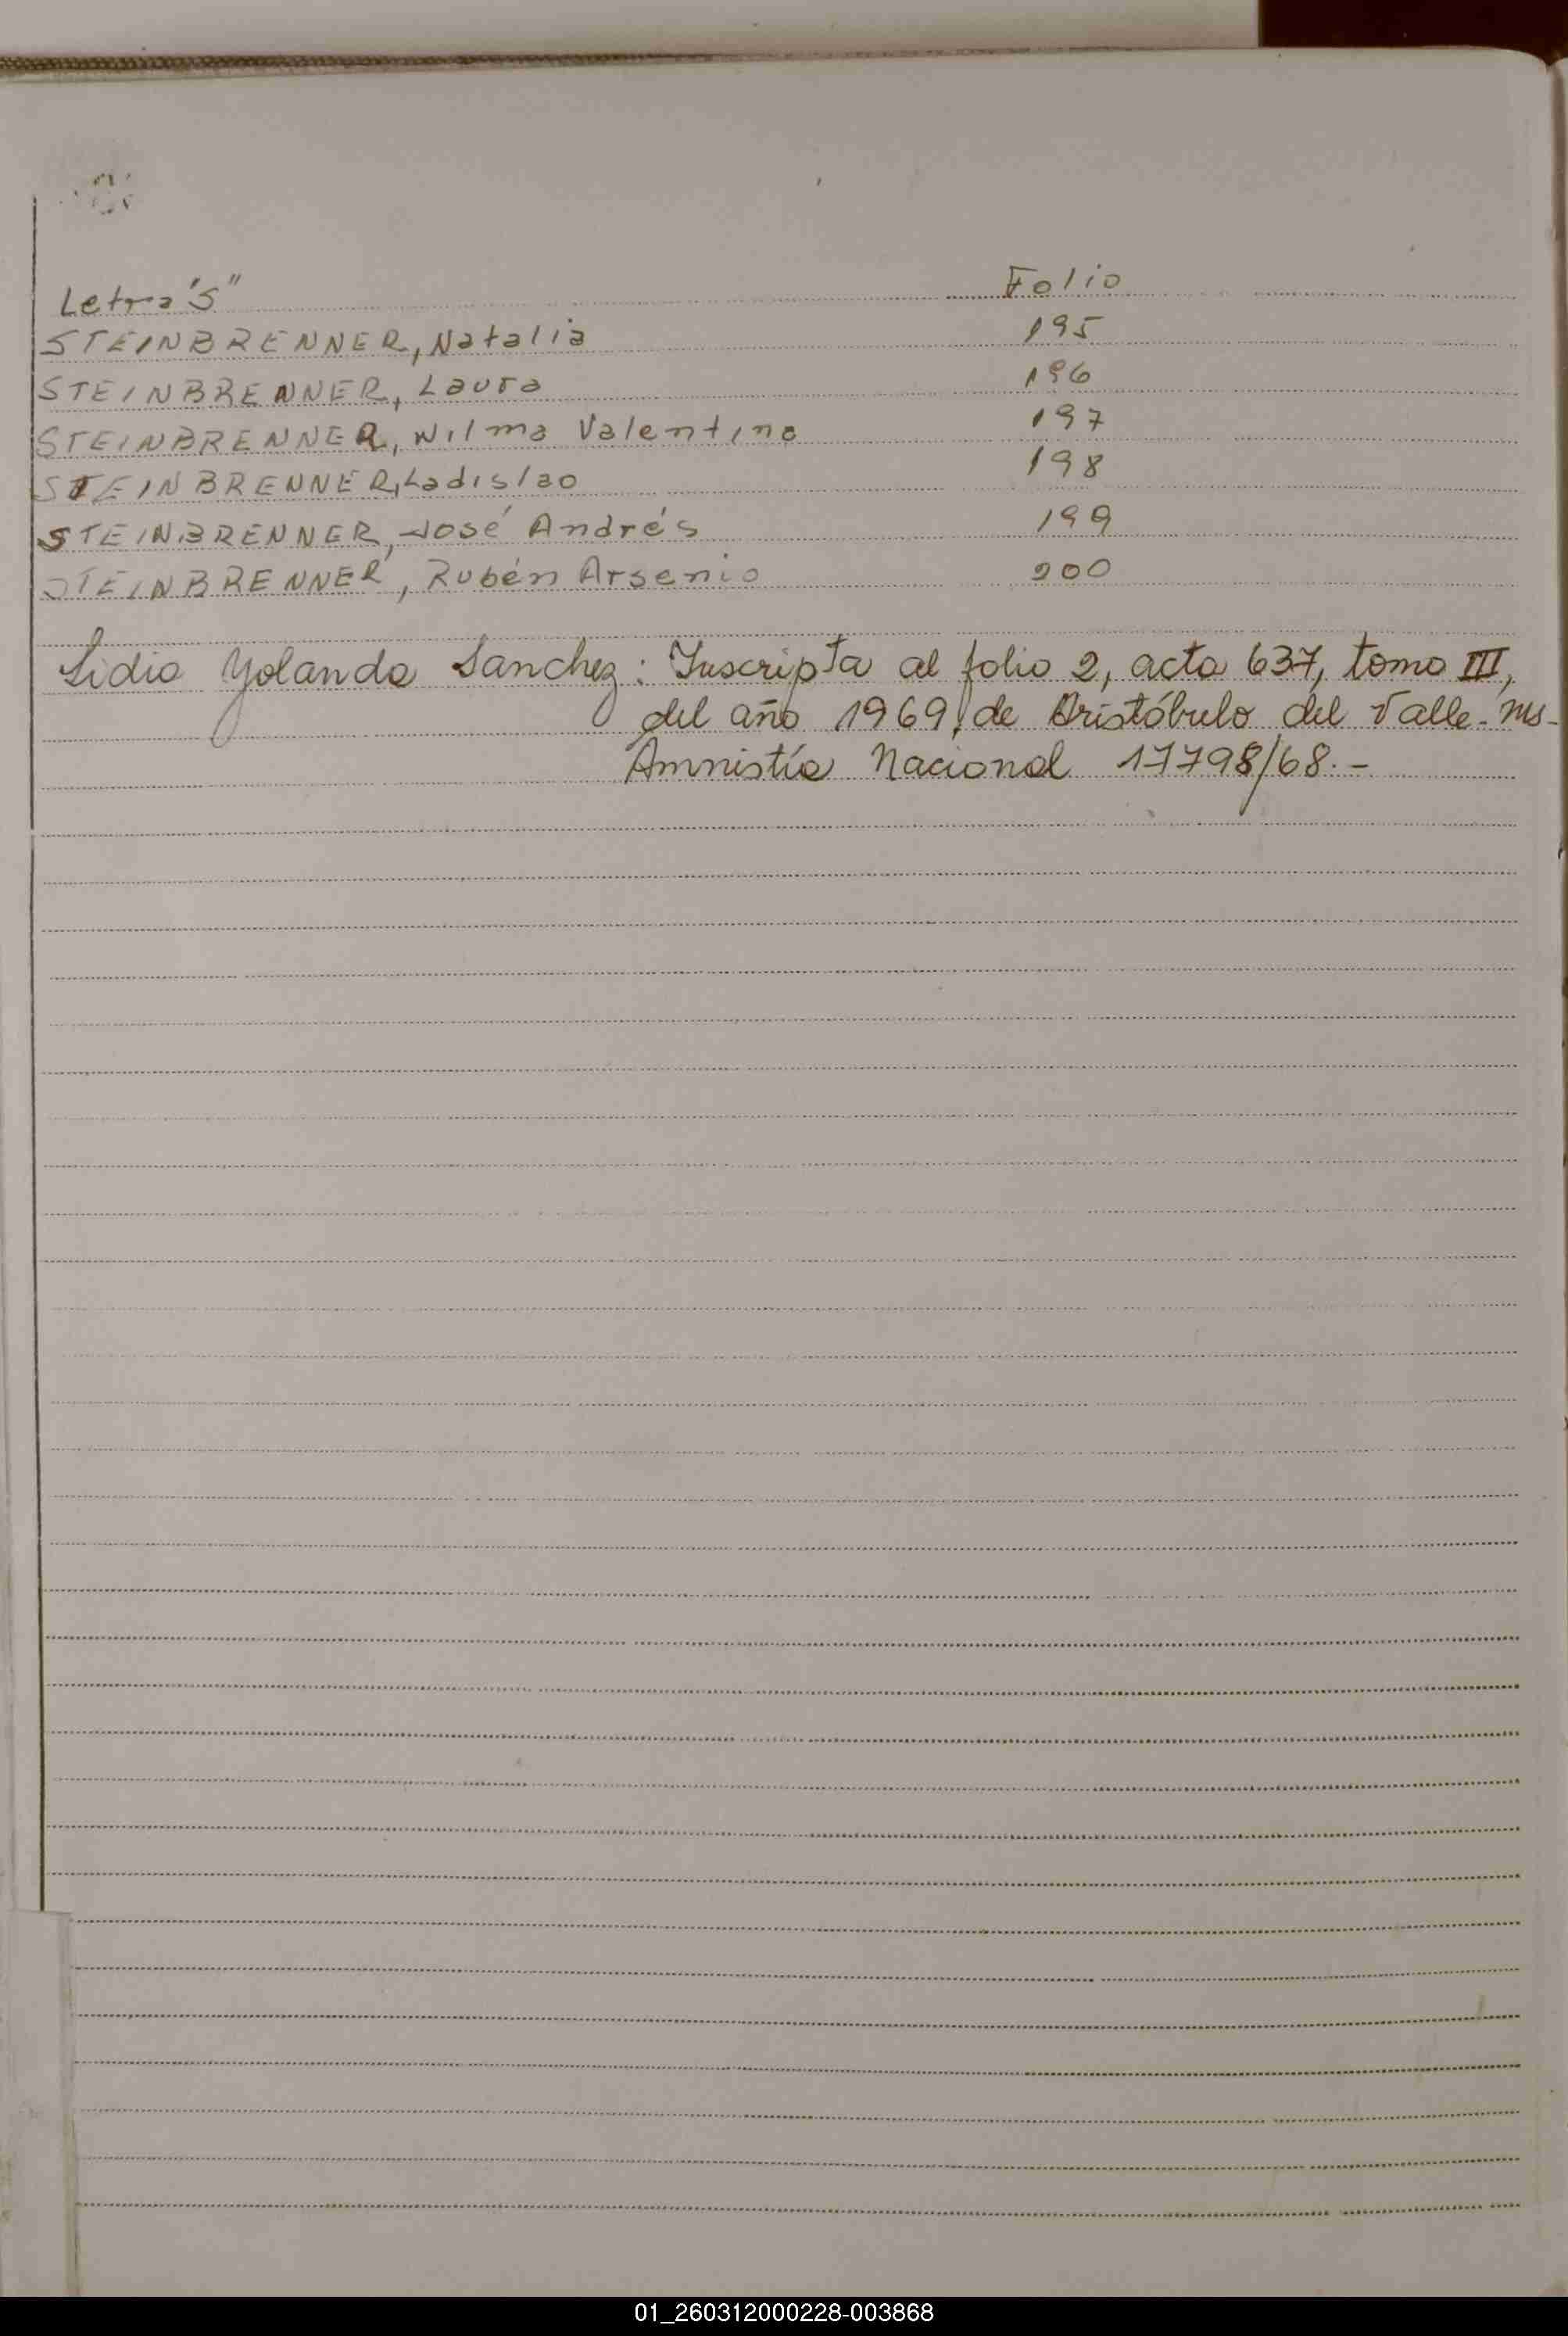 Letra "S" Folio
STEINBRENNER, Natalia 195
STEINBRENNER, Laura 196
STEINBRENNER, Wilma Valentina 197
STEINBRENNER, Ladislao 198
STEINBRENNER, José Andrés 199
STEINBRENNER, Rubén Arsenio 200
Lidia Yolanda Sanchez: Inscripta al folio 2, acta 637, tomo III,
del año 1969, de Aristóbulo del Valle - Ms -
Amnistía Nacional 17798/68.-
01_260312000228-003868